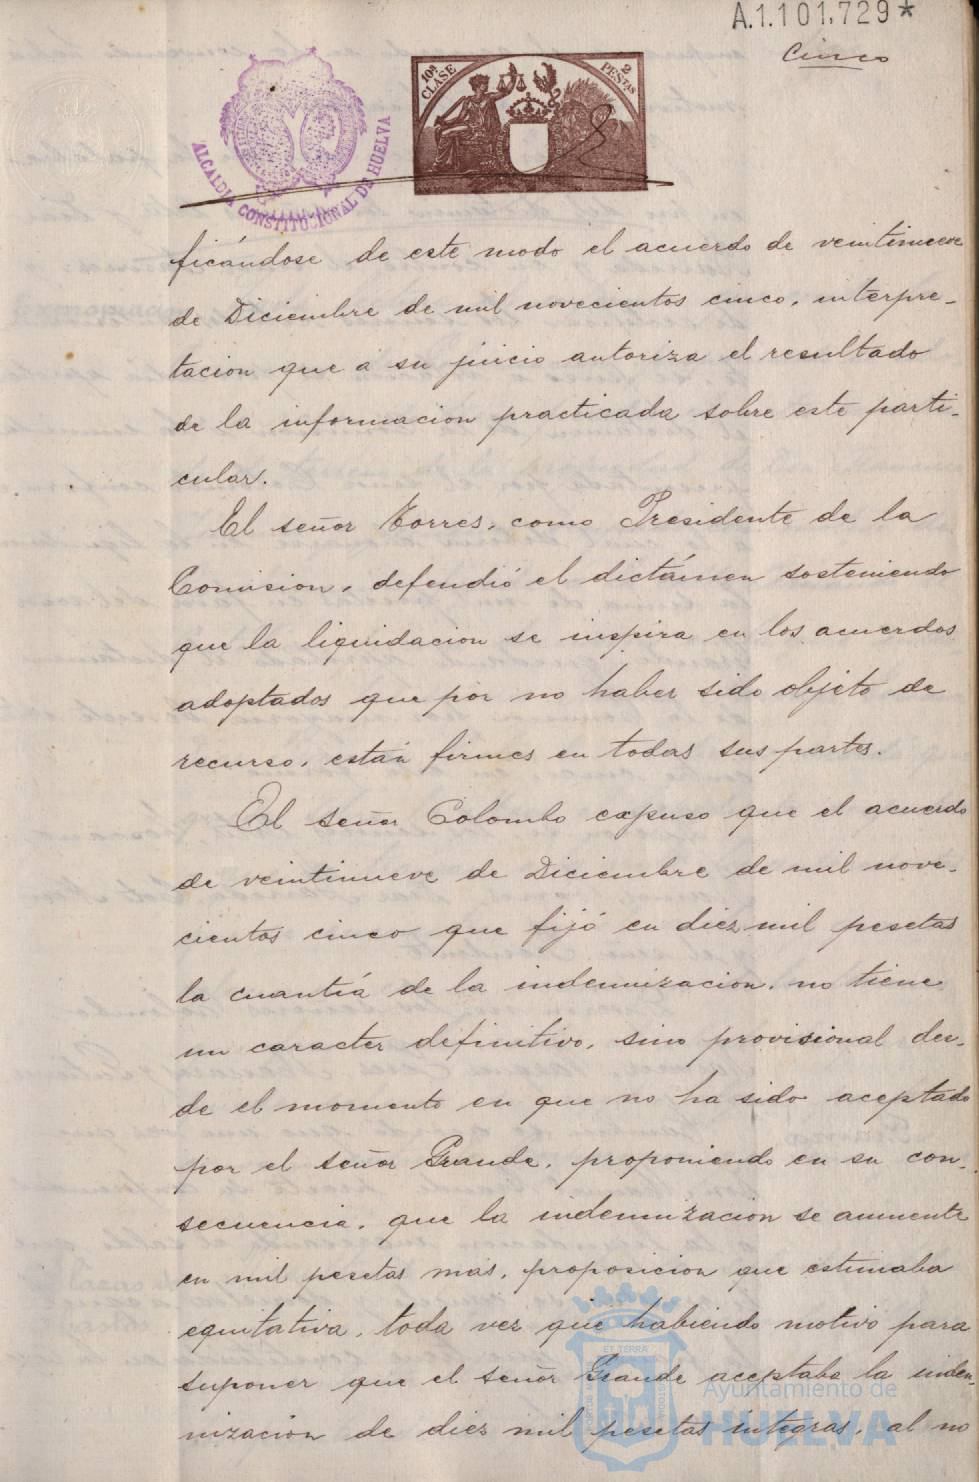 A.1.101.729*
Cinco
10ª CLASE
2 PESETAS
ALCALDIA CONSTITUCIONAL DE HUELVA
ficándose de este modo el acuerdo de veintinueve
de Diciembre de mil novecientos cinco, interpre-
tacion que á su juicio autoriza el resultado
de la informacion practicada sobre este parti-
cular.
El señor Torres, como Presidente de la
Comision, defendió el dictámen sosteniendo
que la liquidacion se inspira en los acuerdos
adoptados que por no haber sido objeto de
recurso, están firmes en todas sus partes.
El señor Colombo expuso que el acuerdo
de veintinueve de Diciembre de mil nove-
cientos cinco que fijó en diez mil pesetas
la cuantiá de la indemnizacion, no tiene
un caracter definitivo, sino provisional des-
de el momento en que no ha sido aceptado
por el señor Grande, proponiendo en su con-
secuencia, que la indemnizacion se aumente
en mil pesetas mas, proposicion que estimaba
equitativa, toda vez que habiendo motivo para
suponer que el señor Grande aceptaba la indem-
nizacion de diez mil pesetas integras, al no
ET TERRÆ
Ayuntamiento de
HUELVA